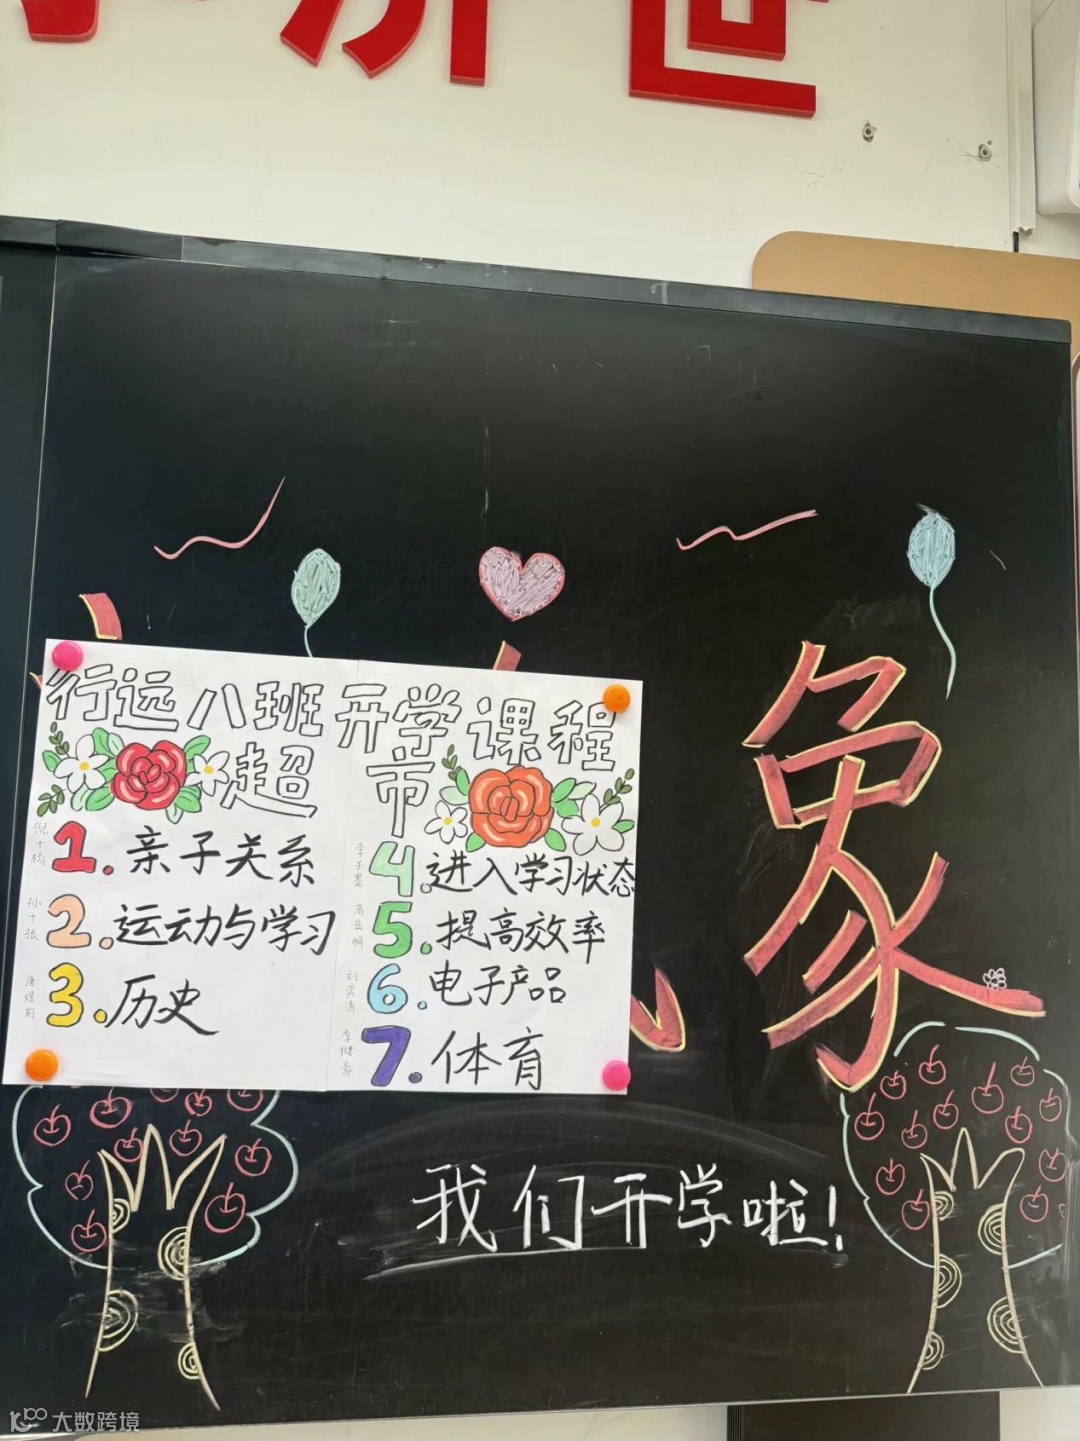 济世
象
行远八班开学课程
超市
倪+杨
1.亲子关系
孙+张
2.运动与学习
3.历史
李子墨
4.进入学习状态
5.提高效率
6.电子产品
7.体育
我们开学啦!
大数跨境